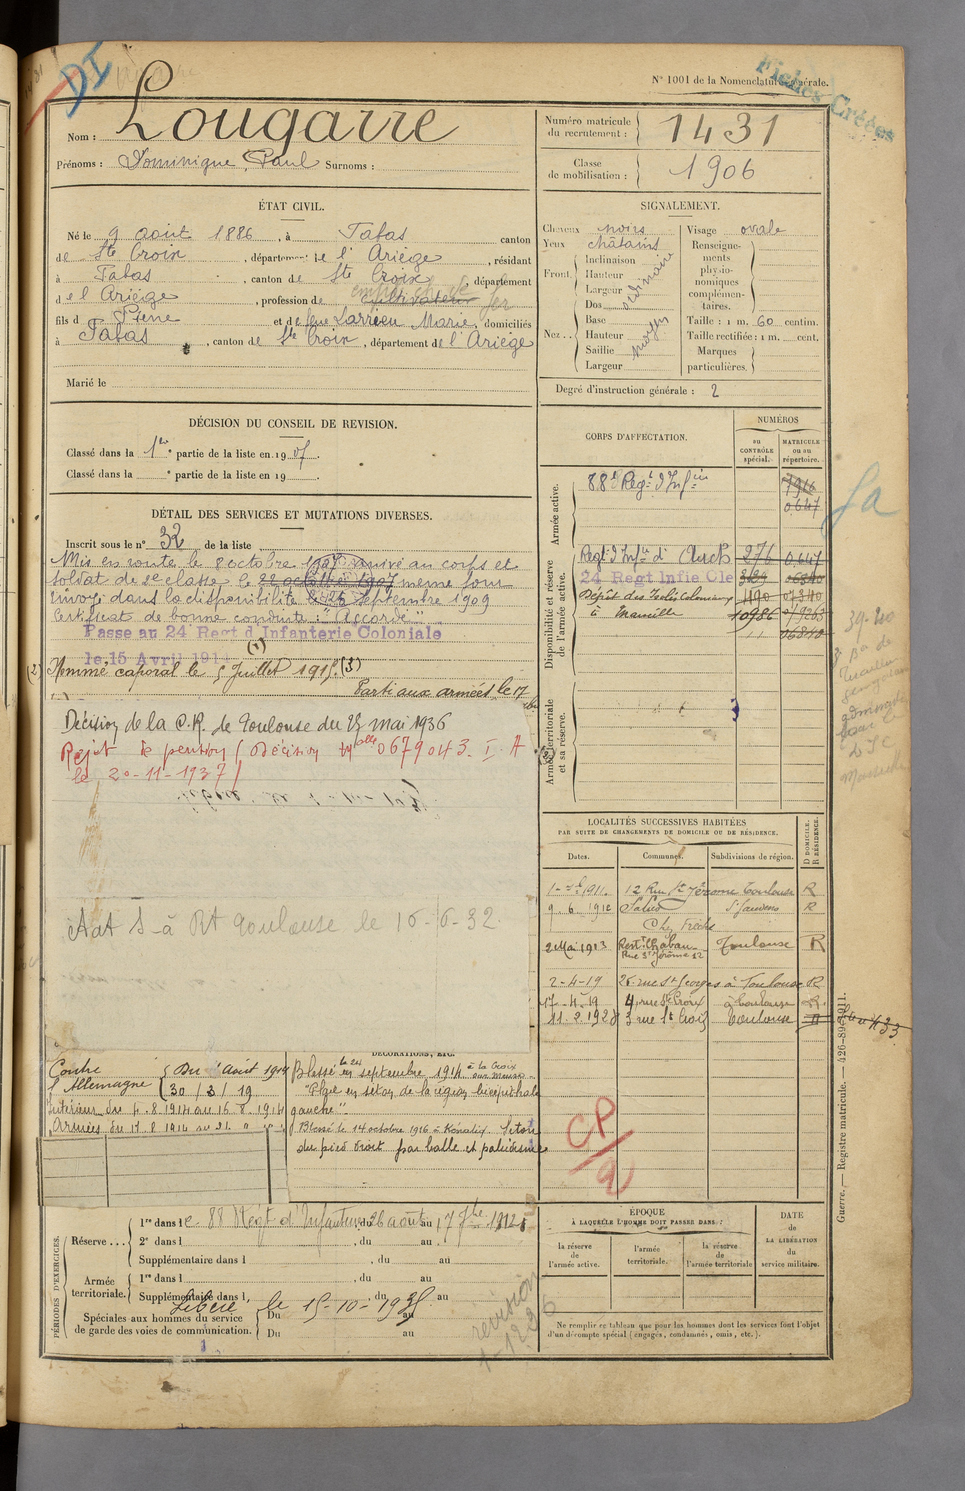 DI
N° 1001 de la Nomenclature générale.
Fiches Créées
Nom : Lougarre
Prénoms : Dominique, Paul Surnoms :
Numéro matricule du recrutement : 1431
Classe de mobilisation : 1906
ÉTAT CIVIL.
Né le 9 août 1886, à Tafas canton
de Ste Croix, département de l'Ariège, résidant
à Tafas, canton de Ste Croix, département
de l'Ariège, profession de cultivateur
fils de Pierre et de feue Larrieu Marie, domiciliés
à Tafas, canton de Ste Croix, département de l'Ariège
Marié le
SIGNALEMENT.
Cheveux noirs
Yeux châtains
Front. Inclinaison
Hauteur
Largeur
ordinaire
Nez . . Dos
Base
Hauteur
Saillie
Largeur
moyen
Visage ovale
Renseignements physionomiques complémentaires.
Taille : 1 m. 60 centim.
Taille rectifiée : 1 m. cent.
Marques particulières.
Degré d'instruction générale : 2
DÉCISION DU CONSEIL DE REVISION.
Classé dans la 1re partie de la liste en 1907.
Classé dans la e partie de la liste en 19 .
DÉTAIL DES SERVICES ET MUTATIONS DIVERSES.
Inscrit sous le n° 32 de la liste
Mis en route le 8 octobre 1907 arrivé au corps et
soldat de 2e classe le 22 octobre 1907 même jour
Envoyé dans la disponibilité le 25 septembre 1909
Certificat de bonne conduite : "Accordé"
Passé au 24 Regt d'Infanterie Coloniale
le 15 Avril 191
(1)
(2) Nommé caporal le 5 Juillet 1915 (3)
Parti aux armées le 17
Décision de la C.R. de Toulouse du 25 mai 1936
Rejet de pension (Décision Mlle 0679043. I. A
le 20-11-1937)
Aat S-à Rt Toulouse le 16-6-32.
CORPS D'AFFECTATION.
NUMÉROS
au CONTRÔLE spécial.
MATRICULE ou au répertoire.
Armée active.
88e Régt d'Infie
1916
0647
Disponibilité et réserve de l'armée active.
Régt d'Infie d'Auch 276 0647
24 Regt Infie Cle
Dépôt des Isolés Coloniaux 1190
à Marseille 10986
Armée territoriale et sa réserve.
LOCALITÉS SUCCESSIVES HABITÉES
PAR SUITE DE CHANGEMENTS DE DOMICILE OU DE RÉSIDENCE.
Dates. Communes. Subdivisions de région. D DOMICILE. R RÉSIDENCE.
1911. 12 Rue St Jérôme Toulouse R
9 6 1912 Salies St Gaudens R
2 Mai 1913 Toulouse R
Rue St Jérôme 12
2-4-19 25 rue St Georges à Toulouse R
17-4-19 4, rue Ste Croix à Toulouse
11.2.1928 3 rue St Croix Toulouse
CP/9
DÉCORATIONS, ETC.
Contre l'Allemagne { Du Août 1914
30/3/19
Intérieur du 4.8.1914 au 16.8.1914
Armées du 17.8.1914 au 21.
Blessé le 22 septembre 1914 à la Croix sur Meuse
"Plaie en séton de la région bicipitale
gauche".
Blessé le 14 octobre 1916 à Kénali. Séton
du pied droit par balle et paludisme
PÉRIODES D'EXERCICES.
Réserve . . . 1re dans le 88 Régt d'Infanterie, du 26 août au 17 7bre 1912
2e dans l , du au
Supplémentaire dans l , du au
Armée territoriale. 1re dans l , du au
Supplémentaire dans l , du au
Spéciales aux hommes du service de garde des voies de communication. Du au
Du au
Libéré le 15-10-1935
revision
ÉPOQUE
À LAQUELLE L'HOMME DOIT PASSER DANS :
la réserve de l'armée active.
l'armée territoriale.
la réserve de l'armée territoriale
DATE de LA LIBÉRATION du service militaire.
Ne remplir ce tableau que pour les hommes dont les services font l'objet
d'un décompte spécial (engagés, condamnés, omis, etc.).
Guerre. — Registre matricule. — 426-89-1911.